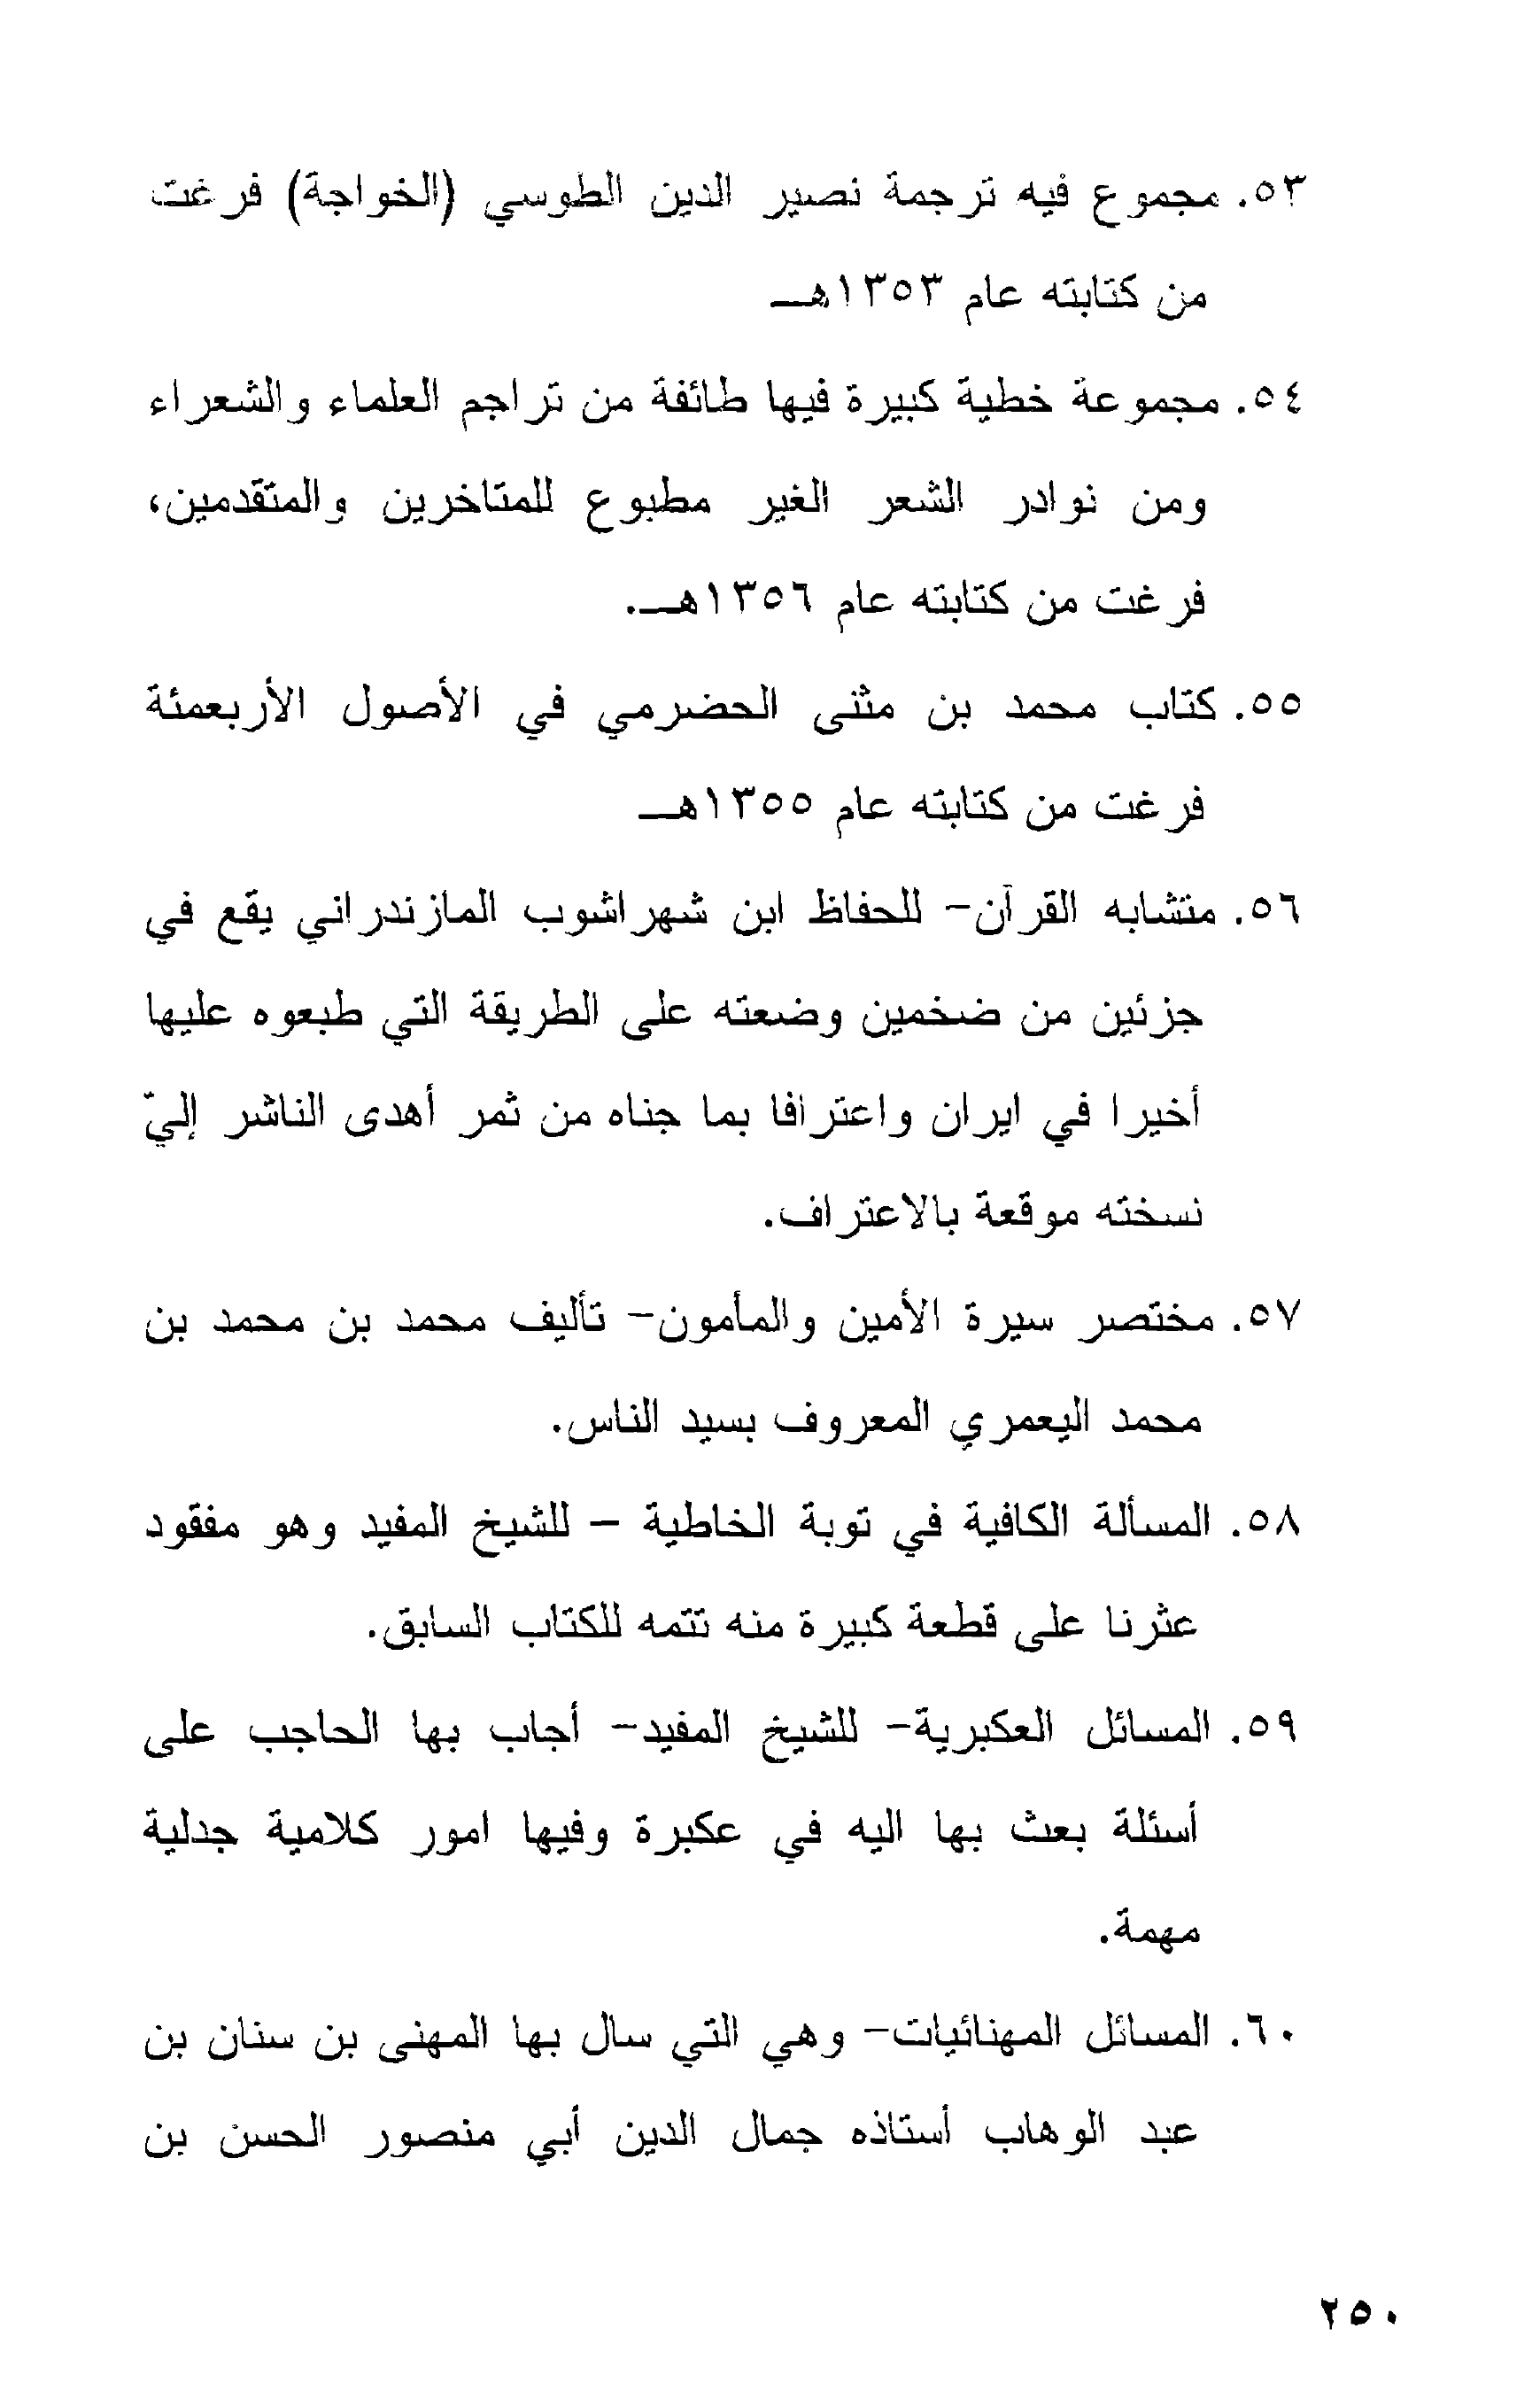 ٥٣. مجموع فيه ترجمة نصير الدين الطوسي (الخواجة) فرغت
من كتابته عام ١٣٥٣هــ
٥٤. مجموعة خطية كبيرة فيها طائفة من تراجم العلماء والشعراء
ومن نوادر الشعر الغير مطبوع للمتاخرين والمتقدمين،
فرغت من كتابته عام ١٣٥٦هــ.
٥٥. كتاب محمد بن مثنى الحضرمي في الأصول الأربعمئة
فرغت من كتابته عام ١٣٥٥هــ
٥٦. متشابه القرآن- للحفاظ ابن شهراشوب المازندراني يقع في
جزئين من ضخمين وضعته على الطريقة التي طبعوه عليها
أخيرا في ايران واعترافا بما جناه من ثمر أهدى الناشر إليّ
نسخته موقعة بالاعتراف.
٥٧. مختصر سيرة الأمين والمأمون- تأليف محمد بن محمد بن
محمد اليعمري المعروف بسيد الناس.
٥٨. المسألة الكافية في توبة الخاطية - للشيخ المفيد وهو مفقود
عثرنا على قطعة كبيرة منه تتمه للكتاب السابق.
٥٩. المسائل العكبرية- للشيخ المفيد- أجاب بها الحاجب على
أسئلة بعث بها اليه في عكبرة وفيها امور كلامية جدلية
مهمة.
٦٠. المسائل المهنائيات- وهي التي سال بها المهنى بن سنان بن
عبد الوهاب أستاذه جمال الدين أبي منصور الحسن بن
٢٥٠